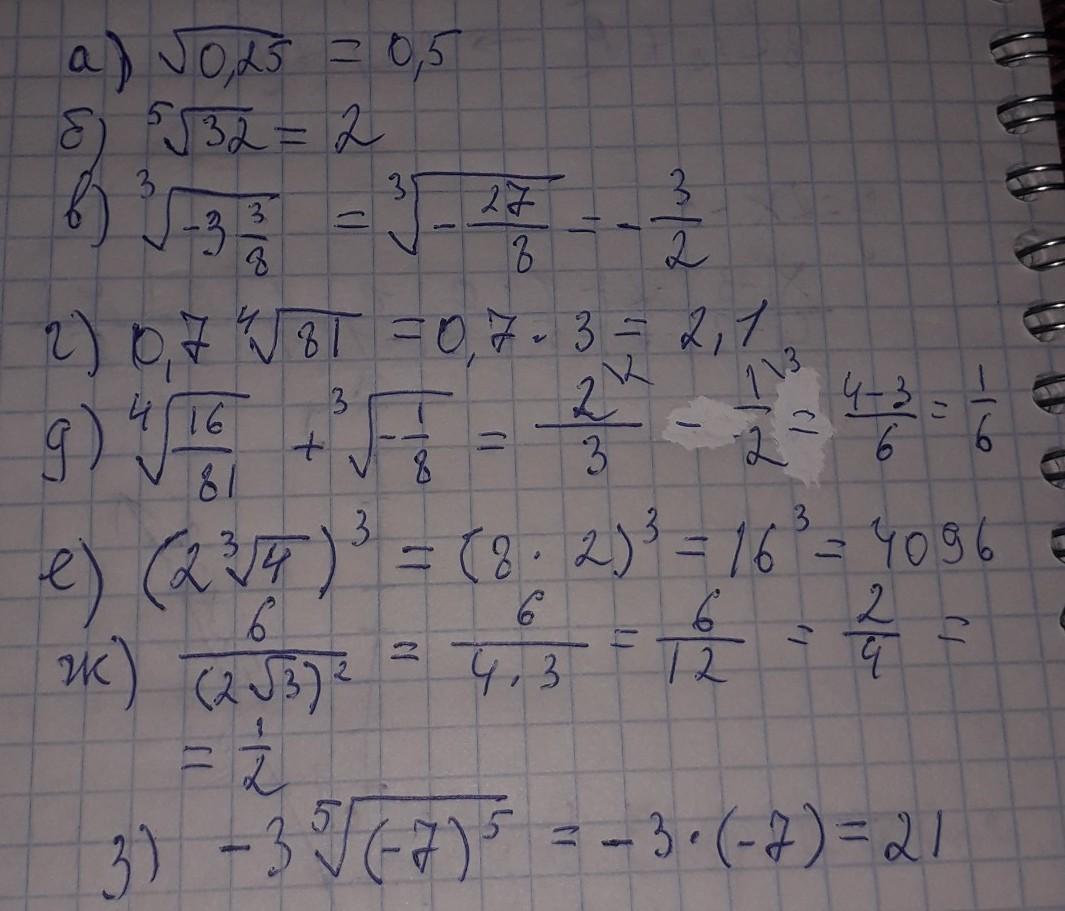 а) √0,25 = 0,5
б) ⁵√32 = 2
в) ³√(-3 3/8) = ³√(-27/8) = -3/2
г) 0,7 ⁴√81 = 0,7 · 3 = 2,1
д) ⁴√(16/81) + ³√(-1/8) = 2/3 \2 - 1/2 \3 = (4-3)/6 = 1/6
е) (2 ³√4)³ = (8 · 2)³ = 16³ = 4096
ж) 6/(2√3)² = 6/(4 · 3) = 6/12 = 2/4 =
= 1/2
з) -3 ⁵√(-7)⁵ = -3 · (-7) = 21